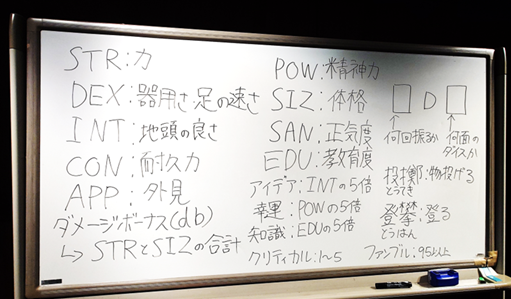 STR:力
DEX:器用さ 足の速さ
INT:地頭の良さ
CON:耐久力
APP:外見
ダメージボーナス(db)
↳STRとSIZの合計
POW:精神力
SIZ:体格
SAN:正気度
EDU:教育度
アイデア:INTの5倍
幸運:POWの5倍
知識:EDUの5倍
クリティカル:1~5
□D□
↑ ↑
何回振るか 何面のダイスか
投擲:物投げる
とうてき
登攀:登る
とうはん
ファンブル:95以上